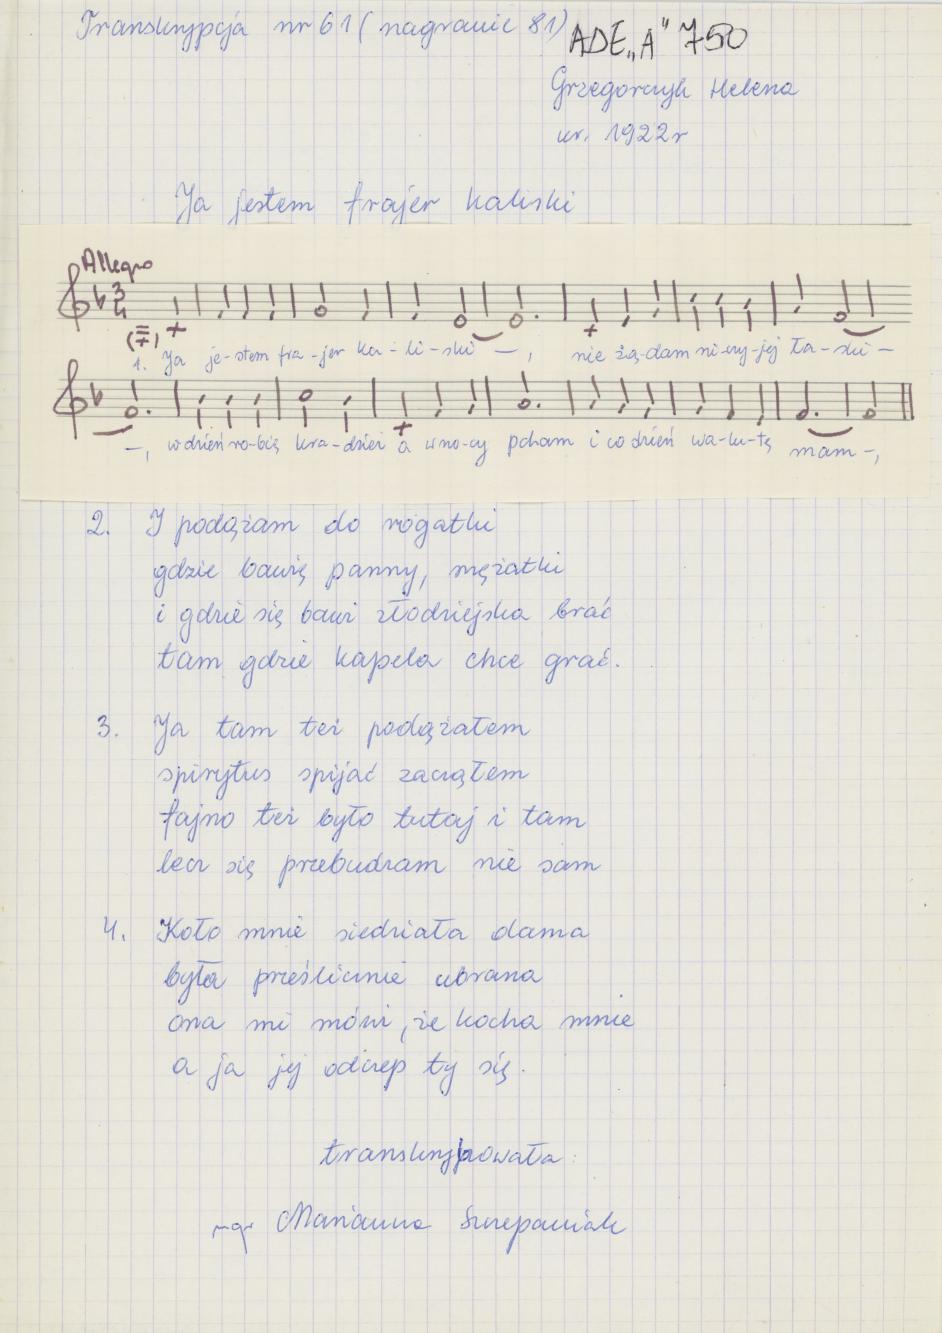 Transkrypcja nr 61 (nagranie 81)
ADE „A" 750
Grzegorczyk Helena
ur. 1922r
Ja jestem frajer kaliski
Allegro
1. Ja je-stem fra-jer ka-li-ski —, nie żą-dam ni-czy-jej ła-ski —
—, w dzień ro-bię kra-dzież a w no-cy pcham i co dzień wa-lu-tę mam —,
2. I podążam do rogatki
gdzie bawię panny, mężatki
i gdzie się bawi złodziejska brać
tam gdzie kapela chce grać.
3. Ja tam też podążałem
spirytus spijać zacząłem
fajno też było tutaj i tam
lecz się przebudzam nie sam
4. Koło mnie siedziała dama
była prześlicznie ubrana
ona mi mówi, że kocha mnie
a ja jej odczep ty się.
transkrybowała:
mgr Marianna Szczepaniak